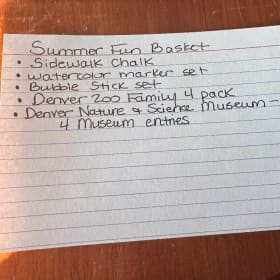 Summer Fun Basket
• Sidewalk Chalk
• watercolour marker set
• Bubble Stick set
• Denver Zoo Family 4 pack
• Denver Nature & Science Museum -
4 Museum entries